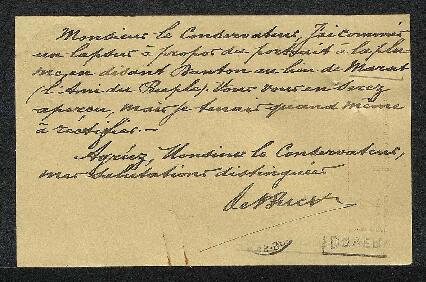 Monsieur le Conservateur, J'ai commis
un lapsus à propos du portrait à la plu-
me, en disant Danton au lieu de Marat
(l'Ami du Peuple). Vous vous en serez
aperçu, mais je tenais quand même
à rectifier. —
Agréez, Monsieur le Conservateur,
mes salutations distinguées